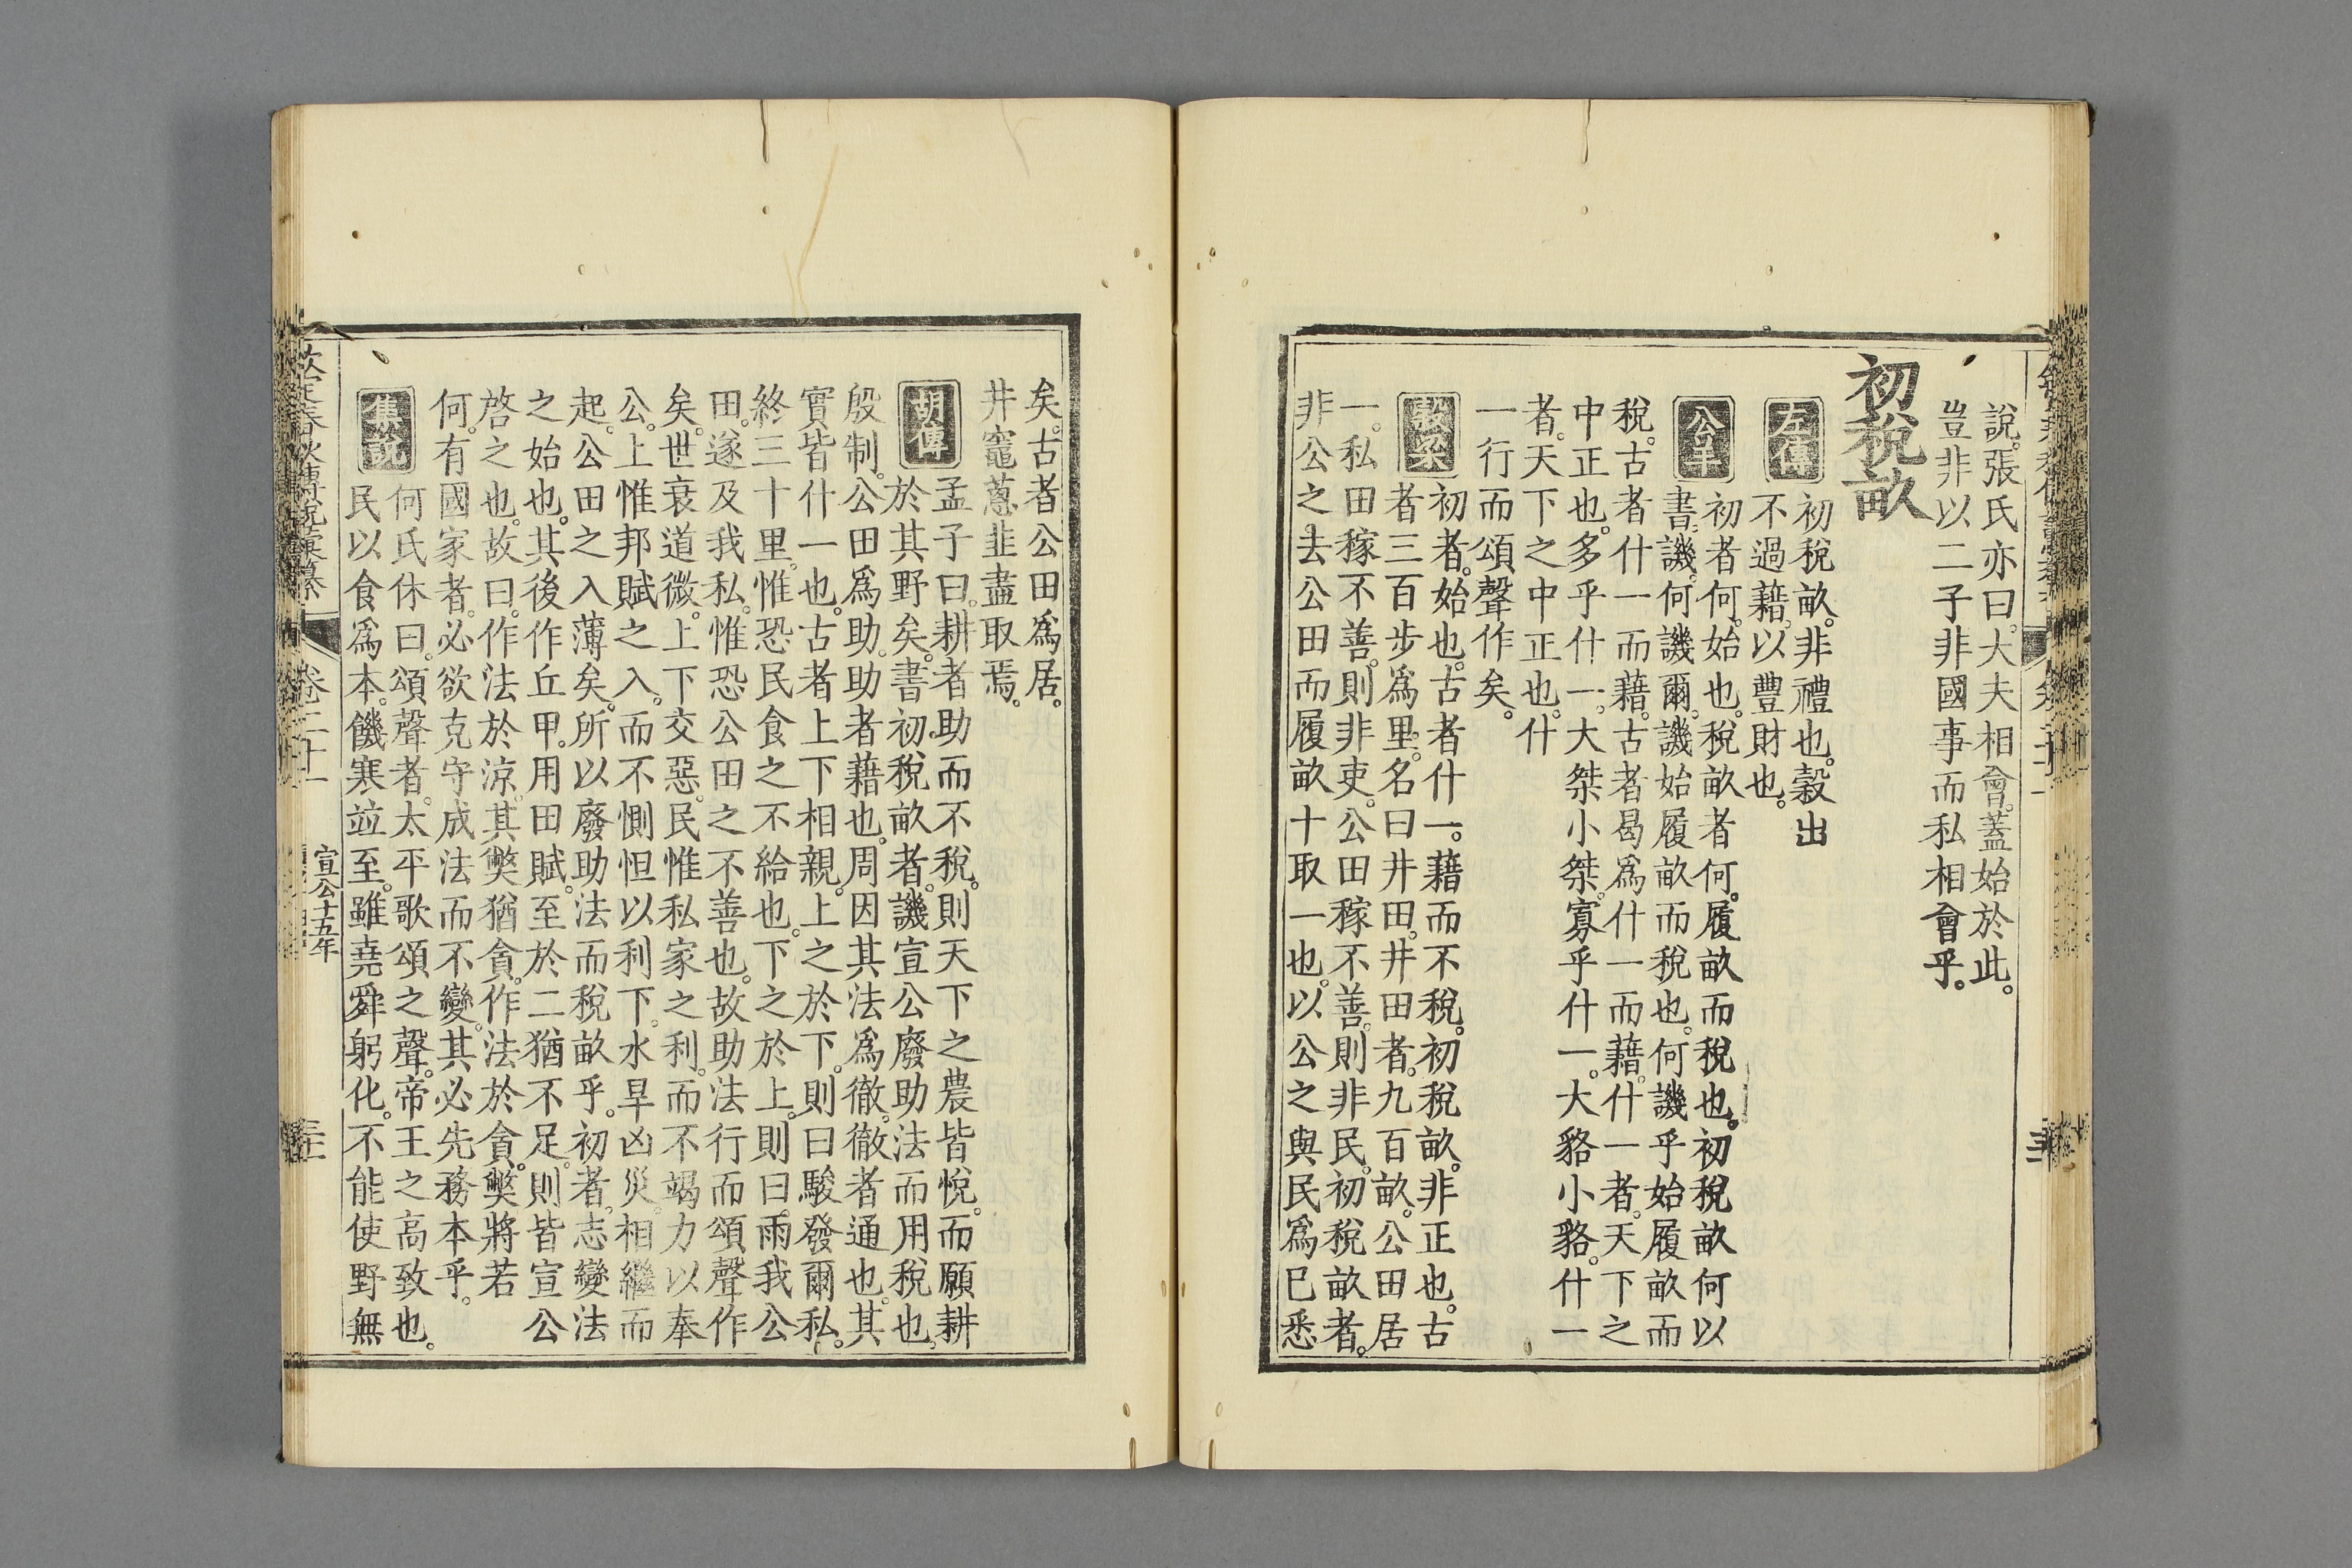 說。張氏亦曰。大夫相會。蓋始於此。
豈非以二子非國事而私相會乎。
初稅畝
左傳
初稅畝。非禮也。穀出
不過藉。以豐財也。
公羊
初者何。始也。稅畝者何。履畝而稅也。初稅畝何以
書。譏。何譏爾。譏始履畝而稅也。何譏乎始履畝而
稅。古者什一而藉。古者曷爲什一而藉。什一者。天下之
中正也。多乎什一。大桀小桀。寡乎什一。大貉小貉。什一
者。天下之中正也。什
一行而頌聲作矣。
穀梁
初者。始也。古者什一。藉而不稅。初稅畝。非正也。古
者三百步爲里。名曰井田。井田者。九百畝。公田居
一。私田稼不善。則非吏。公田稼不善。則非民。初稅畝者。
非公之去公田而履畝十取一也。以公之與民爲已悉
矣。古者公田爲居。
井竈蔥韭盡取焉。
胡傳
孟子曰。耕者助而不稅。則天下之農皆悅。而願耕
於其野矣。書初稅畝者。譏宣公廢助法而用稅也。
殷制。公田爲助。助者藉也。周因其法爲徹。徹者通也。其
實皆什一也。古者上下相親。上之於下。則曰駿發爾私。
終三十里。惟恐民食之不給也。下之於上。則曰雨我公
田。遂及我私。惟恐公田之不善也。故助法行而頌聲作
矣。世衰道微。上下交惡。民惟私家之利。而不竭力以奉
公。上惟邦賦之入。而不惻怛以利下。水旱凶災。相繼而
起。公田之入薄矣。所以廢助法而稅畝乎。初者。志變法
之始也。其後作丘甲。用田賦。至於二猶不足。則皆宣公
啓之也。故曰。作法於涼。其獘猶貪。作法於貪。獘將若
何。有國家者。必欲克守成法而不變。其必先務本乎。
集說
何氏休曰。頌聲者。太平歌頌之聲。帝王之高致也。
民以食爲本。饑寒竝至。雖堯舜躬化。不能使野無
春秋傳說彙纂
卷二十一
宣公十五年